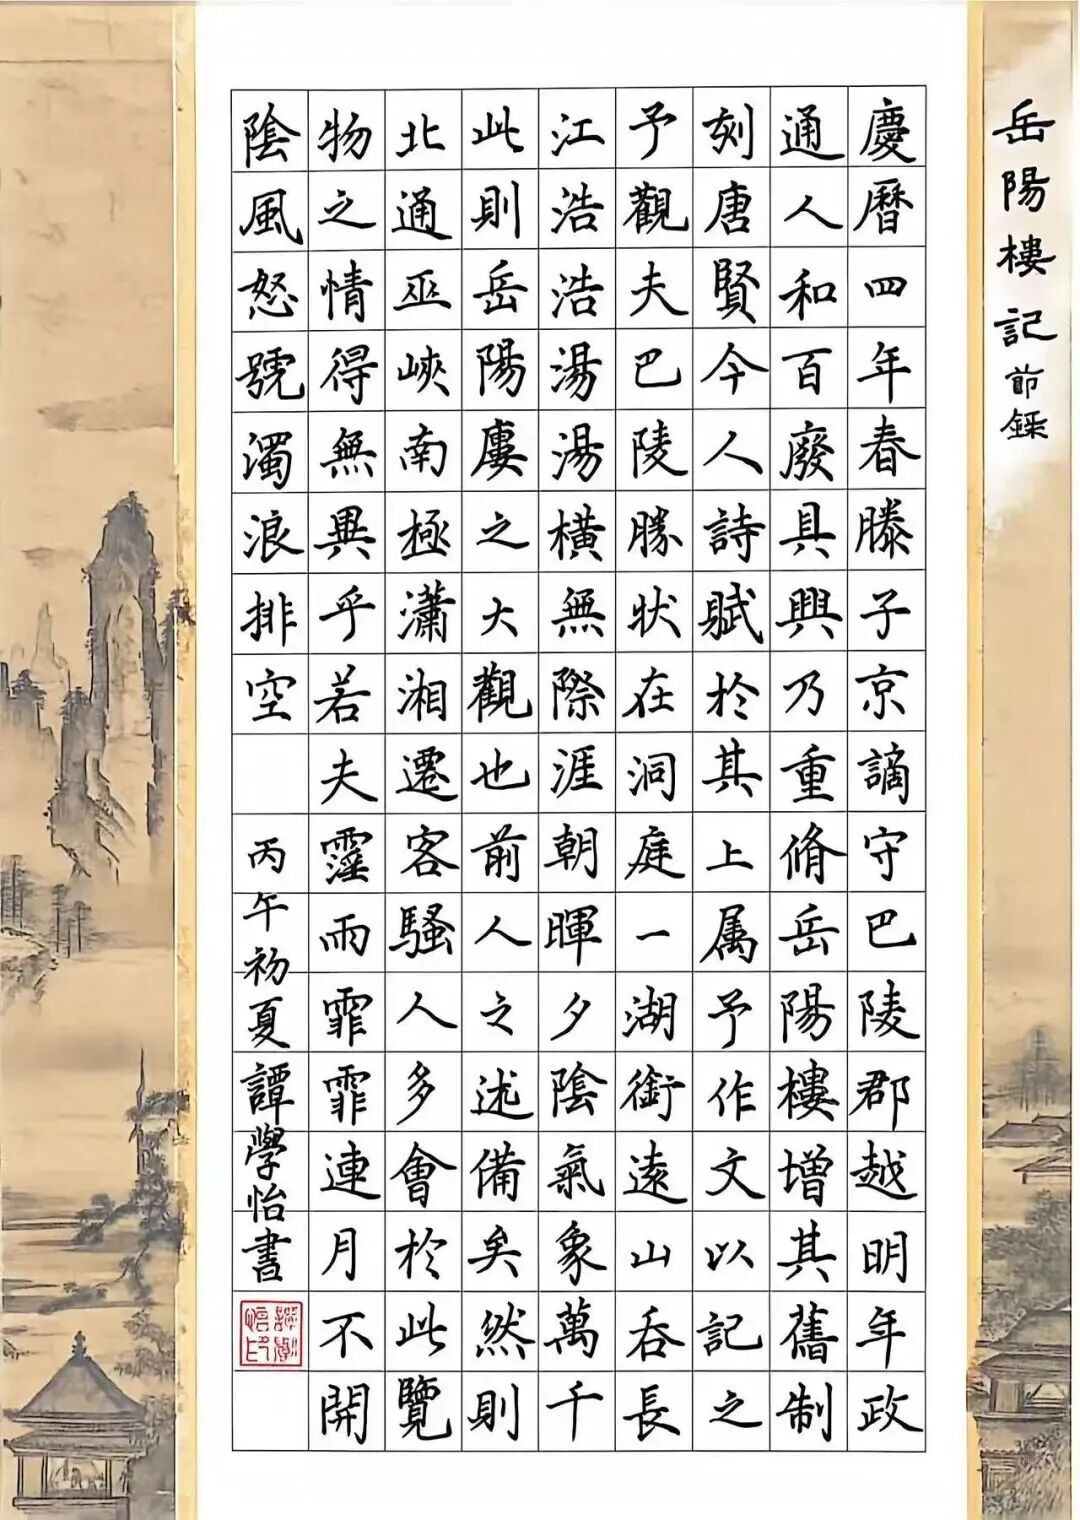 岳陽樓記節錄
慶曆四年春滕子京謫守巴陵郡越明年政
通人和百廢具興乃重脩岳陽樓增其舊制
刻唐賢今人詩賦於其上属予作文以記之
予觀夫巴陵勝状在洞庭一湖銜遠山吞長
江浩浩湯湯橫無際涯朝暉夕陰氣象萬千
此則岳陽廔之大觀也前人之述備矣然則
北通巫峽南極瀟湘遷客騷人多會於此覽
物之情得無異乎若夫霪雨霏霏連月不開
陰風怒號濁浪排空
丙午初夏譚學怡書
譚學怡印